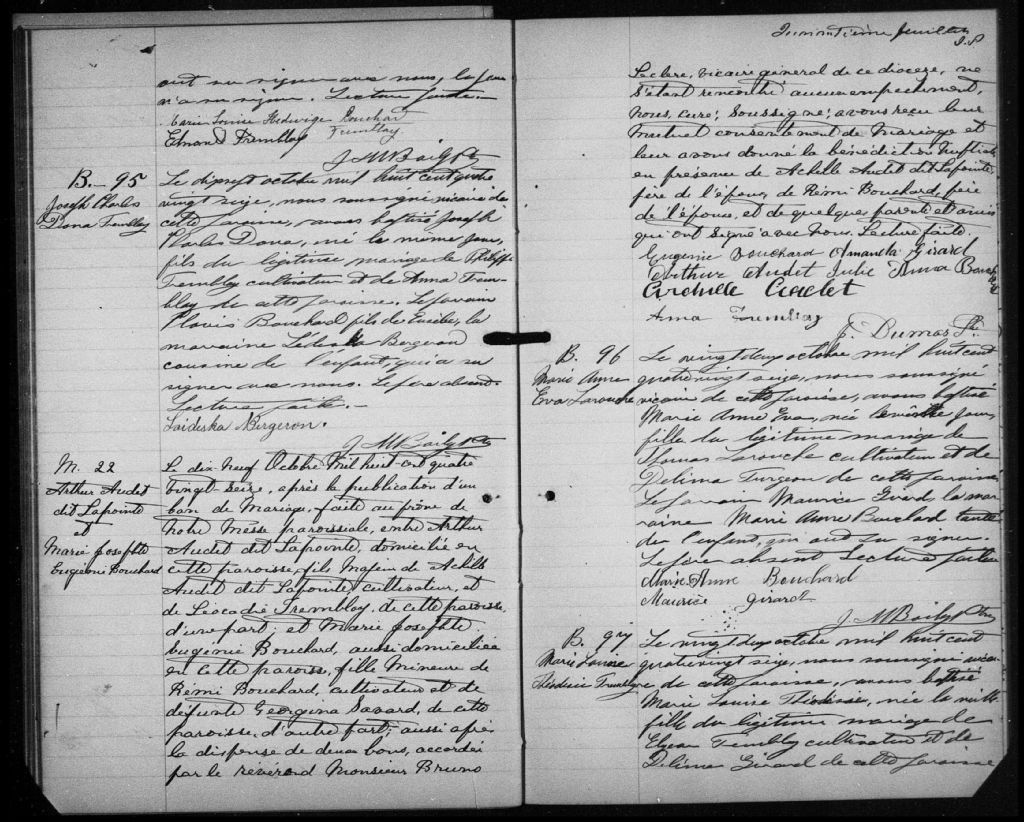 ont su signer avec nous, le père
n'a su signer. Lecture faite.-
Marie Louise Hedwige Bouchard
Tremblay
Edmond Tremblay
B.- 95
Joseph Charles
Dona Tremblay
Le dix-sept octobre mil huit cent quatre
vingt seize, nous soussigné, vicaire de
cette paroisse, avons baptisé Joseph
Charles Dona, né le même jour,
fils du légitime mariage de Philippe
Tremblay cultivateur et de Anna Trem-
blay de cette paroisse. Le parrain
Bouchard fils de Eusèbe, la
marraine Bergeron
cousine de l'enfant, qui a su
signer avec nous. Le père absent.
Lecture faite.-
Bergeron.
M. 22
Arthur Audet
dit Lapointe
et
Marie Josephte
Eugénie Bouchard
Le dix-neuf Octobre Mil huit-cent quatre
vingt-seize, après la publication d'un
ban de Mariage, faite au prône de
notre Messe paroissiale, entre Arthur
Audet dit Lapointe, domicilié en
cette paroisse, fils Majeur de Achille
Audet dit Lapointe, cultivateur, et
de Léocadie Tremblay, de cette paroisse,
d'une part; et Marie Josephte
Eugénie Bouchard, aussi domiciliée
en cette paroisse, fille Mineure de
Rémi Bouchard, cultivateur et de
défunte Georgina Savard, de cette
paroisse, d'autre part; aussi après
la dispense de deux bans, accordée
par le révérend Monsieur Bruno
feuillet
Leclerc, vicaire général de ce diocèse, ne
s'étant rencontré aucun empêchement,
nous, curé, soussigné, avons reçu leur
mutuel consentement de Mariage et
leur avons donné la bénédiction nuptiale
en présence de Achille Audet dit Lapointe,
père de l'époux, de Rémi Bouchard, père
de l'épouse, et de quelques parents et amis
qui ont signé avec nous. Lecture faite.
Eugenie Bouchard Amanda Girard
Arthur Audet Julie Anna
Archille Audet
Anna Tremblay
J. Dumas Ptre
B. 96
Marie Anne
Eva Larouche
Le vingt deux octobre mil huit cent
quatre vingt seize, nous soussigné
vicaire de cette paroisse, avons baptisé
Marie Anne Eva, née jour,
fille du légitime mariage de
Thomas Larouche cultivateur et de
Delima Turgeon de cette paroisse
Le parrain Maurice Girard la mar
raine Marie Anne Bouchard tante
de l'enfant, qui ont su signer.
Le père absent Lecture faite
Marie Anne Bouchard
Maurice Girard
B. 97
Marie Louise
Tremblay
Le vingt deux octobre mil huit cent
quatre vingt seize, nous soussigné vicai
re de cette paroisse, avons baptisé
Marie Louise née la veille
fille du légitime mariage de
Tremblay cultivateur et de
Delima Girard de cette paroisse